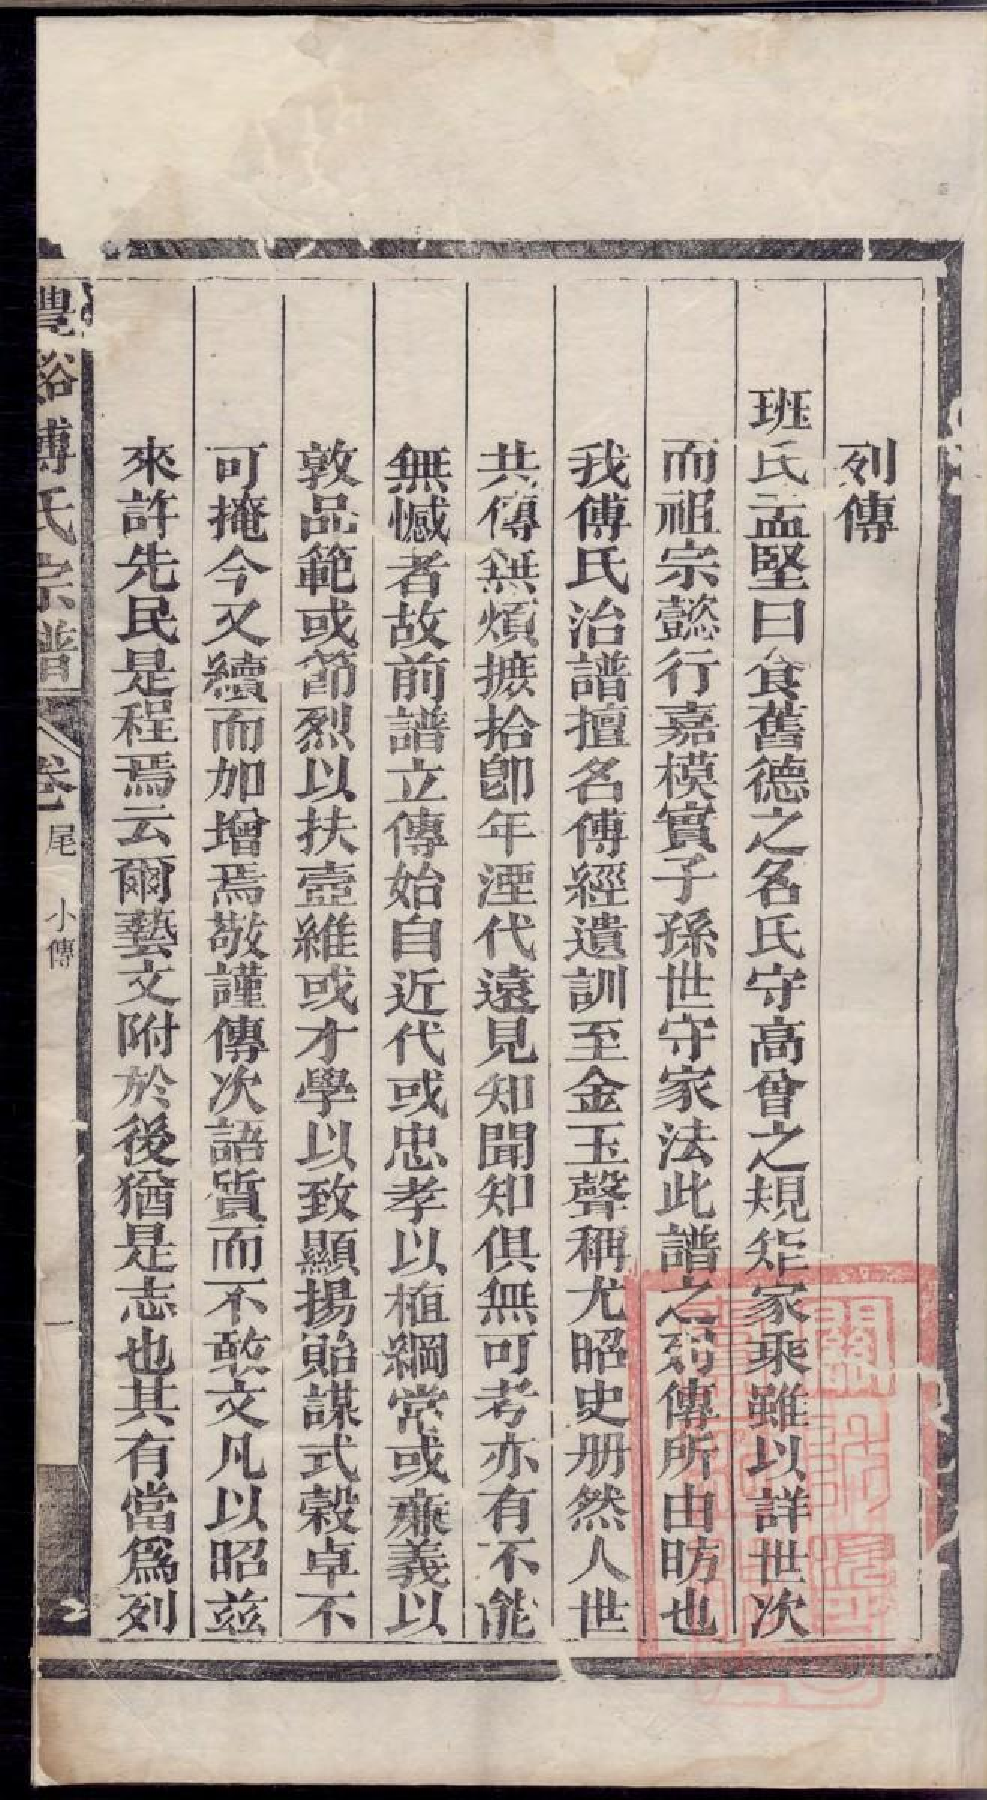 列傳
班氏孟堅曰食舊德之名氏守高曾之規矩家乘雖以詳世次
而祖宗懿行嘉模實子孫世守家法此譜之列傳所由昉也
我傅氏治譜擅名傅經遺訓至金玉聲稱尤昭史册然人世
共傳無煩摭拾卽年湮代遠見知聞知俱無可考亦有不能
無憾者故前譜立傳始自近代或忠孝以植綱常或廉義以
敦品範或節烈以扶壼維或才學以致顯揚貽謀式穀卓不
可掩今又續而加增焉敬謹傳次語質而不敢文凡以昭茲
來許先民是程焉云爾藝文附於後猶是志也其有當爲列
豊谿傅氏宗譜 卷尾 小傳 一